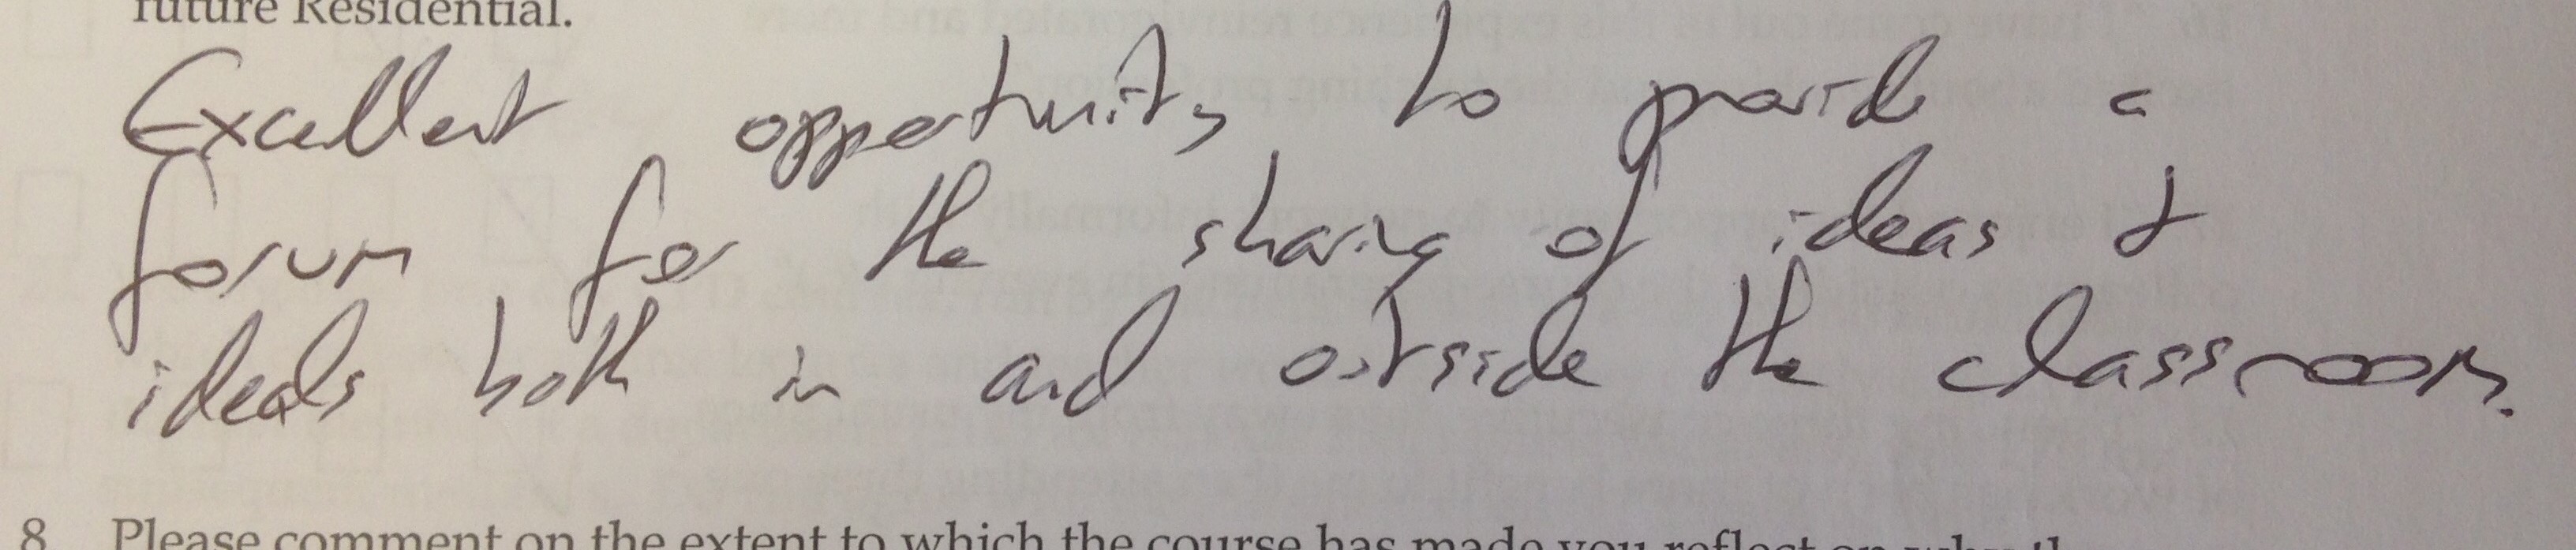 future Residential.
Excellent opportunity to provide a
forum for the sharing of ideas &
ideals both in and outside the classroom.
8 Please comment on the extent to which the course has made you reflect on why